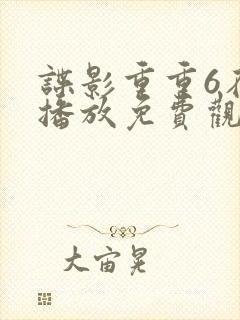 諜影重重6在
播放免費觀
大宙晃